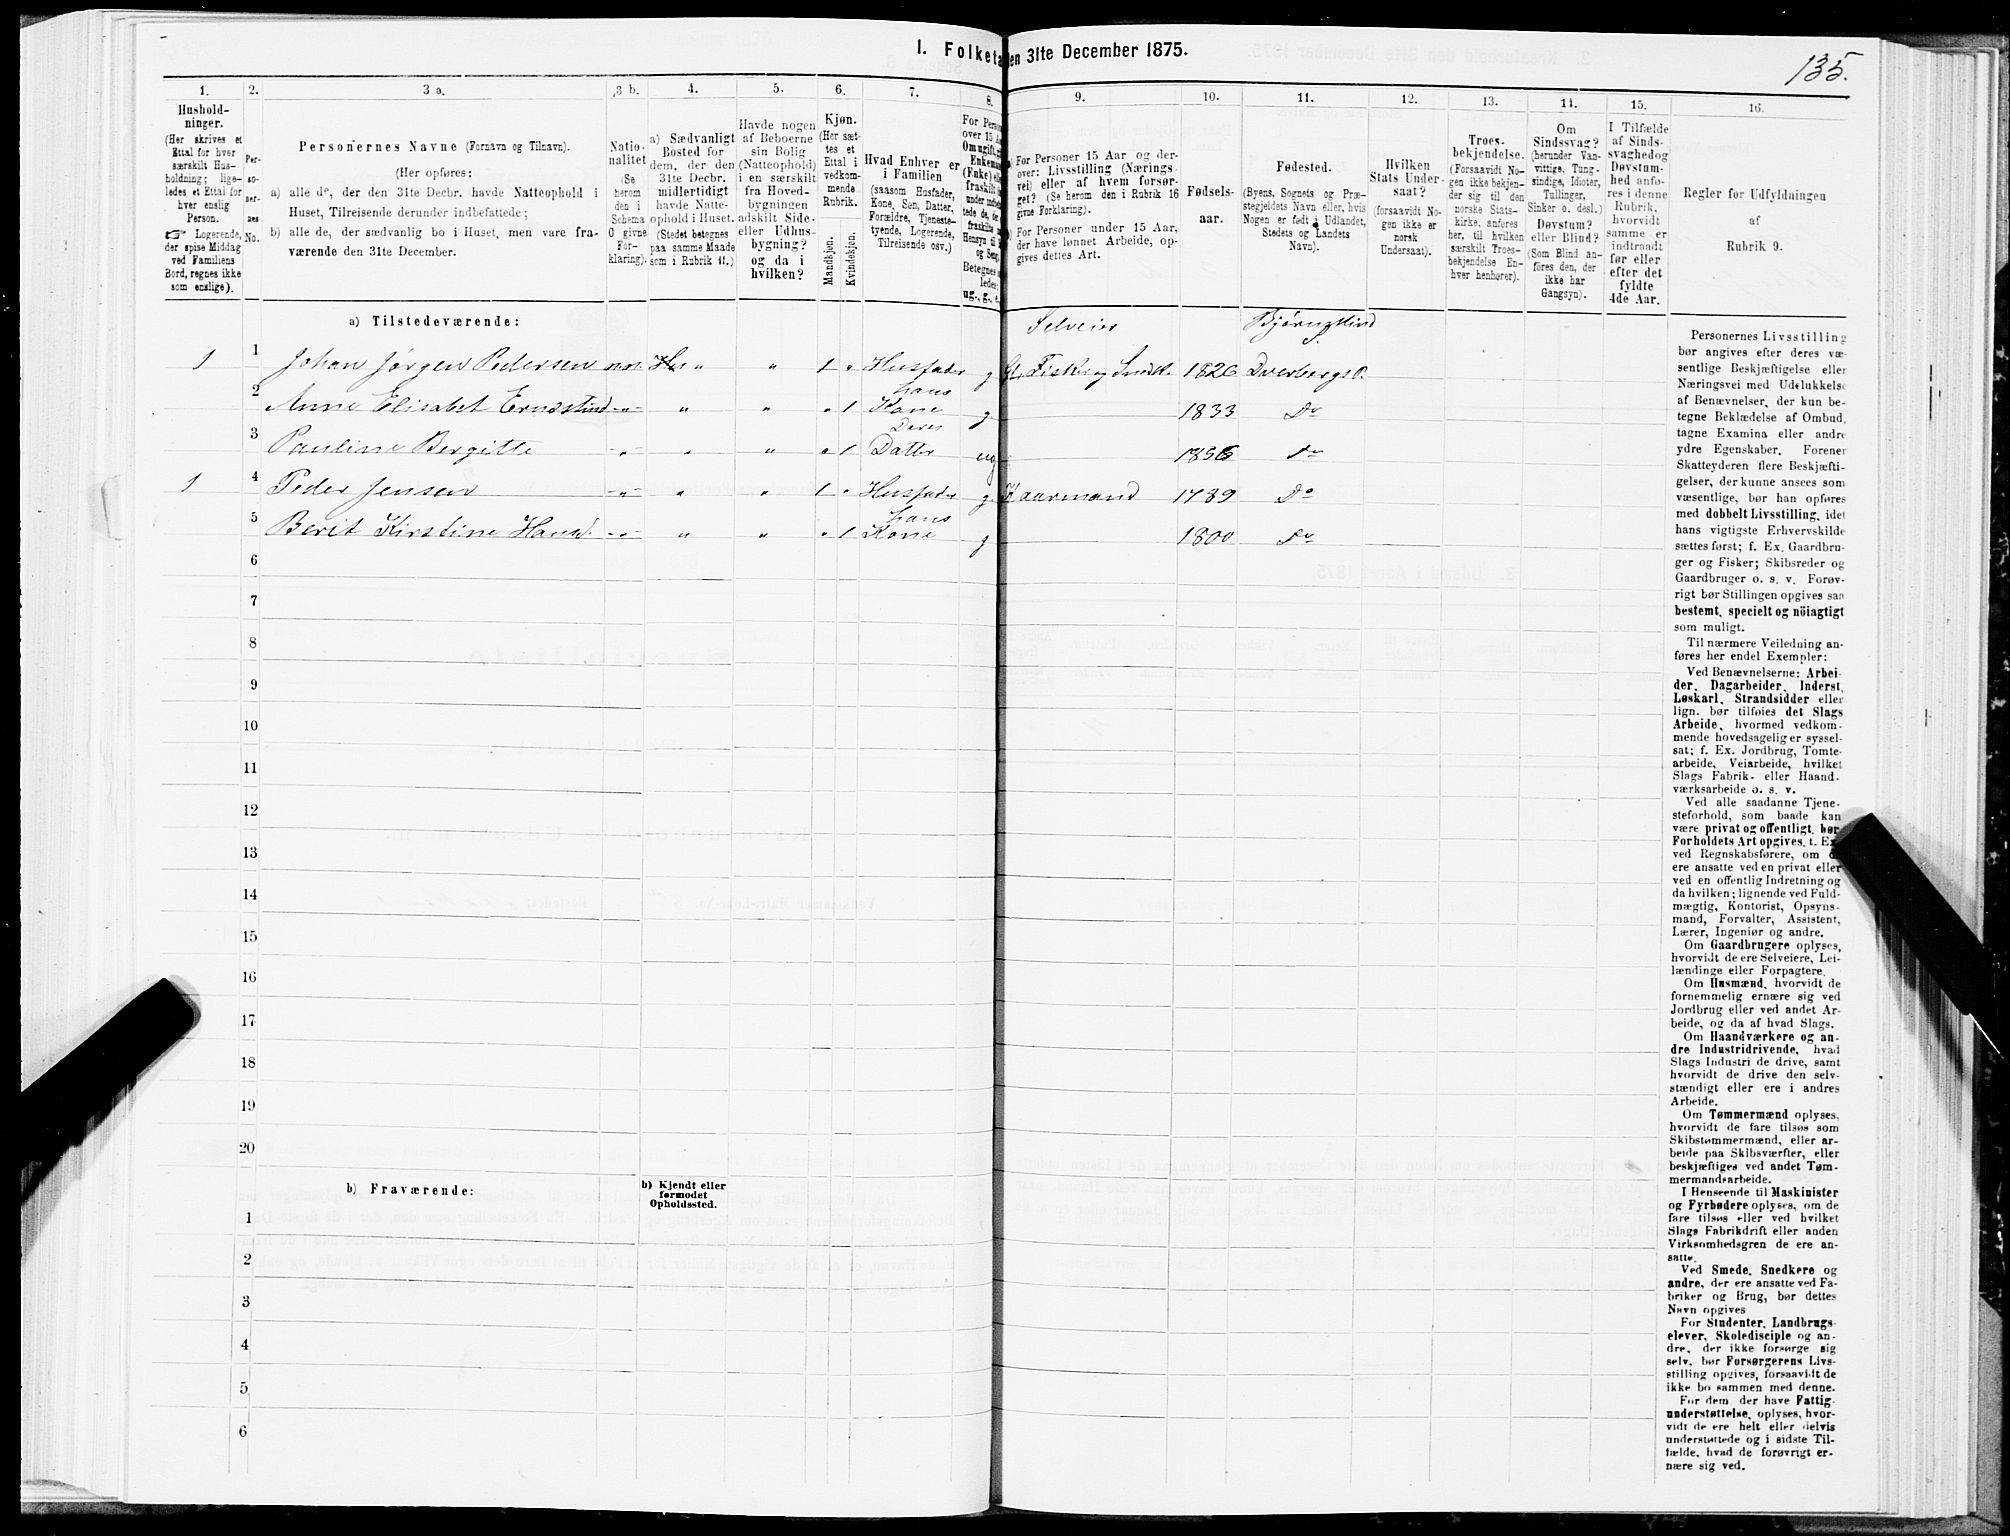 I. Folketa
en 31te December 1875.
135.
1.
2.
3 a.
3 b.
4.
5.
6.
7.
8.
9.
10.
11.
12.
13.
14.
15.
16.
Hushold-
ninger.
(Her skrives et
Ettal for hver
særskilt Hus-
holdning; lige-
ledes et Ettal for
hver enslig
Person.
☞ Logerende,
der spise Middag
ved Familiens
Bord, regnes ikke
som enslige).
Per-
so-
ner-
nes
No.
Personernes Navne (Fornavn og Tilnavn).
(Her opføres:
a) alle de, der den 31te Decbr. havde Natteophold i
Huset, Tilreisende derunder indbefattede;
b) alle de, der sædvanlig bo i Huset, men vare fra-
værende den 31te December.
Natio-
nalitet
(Se
herom
den i
Schema
O givne
For-
klaring).
a) Sædvanligt
Bosted for
dem, der den
31te Decbr.
midlertidigt
havde Natte-
ophold i Huset.
(Stedet betegnes
paa samme Maade
som i Rubrik 11.)
Havde nogen
af Beboerne
sin Bolig
(Natteophold)
i en særskilt
fra Hoved-
bygningen
adskilt Side-
eller Udhus-
bygning?
og da i
hvilken?
Kjøn.
(Her sæt-
tes et
Ettal i
vedkom-
mende
Rubrik.
Mandkjøn.
Kvindekjøn.
Hvad Enhver er
i Familien
(saasom Husfader,
Kone, Søn, Datter,
Forældre, Tjeneste-
tyende, Logerende,
Tilreisende osv.)
For Perso
over 15 Aa
Om ugift, gi
Enkema
(Enke) el
fraskilt
under indbe
tede de, der
fraskilte
Hensyn til
og Seng
Betegnes s
ledes:
ug., g., e.
For Personer 15 Aar og der-
over: Livsstilling (Nærings-
vei) eller af hvem forsør-
get? (Se herom den i Rubrik 16
givne Forklaring).
For Personer under 15 Aar,
der have lønnet Arbeide, op-
gives dettes Art.
Fødsels-
aar.
Fødested.
(Byens, Sognets og Præ-
stegjeldets Navn eller, hvis
Nogen er født i Udlandet,
Stedets og Landets
Navn).
Hvilken
Stats Under-
saat?
(forsaavidt No-
gen ikke er
norsk
Undersaat).
Troes-
bekjendelse.
(Forsaavidt No-
gen ikke bekjen-
der sig til den
norske Stats-
kirke, anføres
her, til hvilken
særskilt Troes-
bekjendelse En-
hver henhører).
Om
Sindssvag?
(herunder Van-
vittige, Tung-
sindige, Idioter,
Tullinger,
Sinker o. desl.)
Døvstum?
eller Blind?
(Som Blind an-
føres den, der
ikke har
Gangsyn).
I Tilfælde
af Sinds-
svaghed og
Døvstum-
hed anfø-
res i denne
Rubrik,
hvorvidt
samme er
indtraadt
før eller
efter det
fyldte
4de Aar.
Regler for Udfyldningen
af
Rubrik 9.
a) Tilstedeværende:
Selveier
1 1 Johan Jørgen Pedersen nor. „ „ 1 „ Husfader g Gb. Fisker og Snedk. 1826 Dverbergs P.
2 Anne Elisabet Ernstsen -„- „ „ „ 1 hans Kone g 1833 Do
3 Pauline Bergitte -„- „ „ „ 1 Deres Datter ug 1856 Do
1 4 Peder Jensen -„- „ „ 1 „ Husfader g Kaarmand 1789 Do
5 Berit Kirstine Hansd. -„- „ „ „ 1 hans Kone g 1800 Do
6
7
8
9
10
11
12
13
14
15
16
17
18
19
20
b) Fraværende:
b) Kjendt eller
formodet
Opholdssted.
1
2
3
4
5
6
Personernes Livsstilling
bør angives efter deres væ-
sentlige Beskjæftigelse eller
Næringsvei med Udelukkelse
af Benævnelser, der kun be-
tegne Beklædelse af Ombud,
tagne Examina eller andre
ydre Egenskaber. Forener
Skatteyderen flere Beskjæfti-
gelser, der kunne ansees som
væsentlige, bør han opføres
med dobbelt Livsstilling, idet
hans vigtigste Erhvervskilde
sættes først; f. Ex. Gaardbru-
ger og Fisker; Skibsreder og
Gaardbruger o. s. v. Forøv-
rigt bør Stillingen opgives saa
bestemt, specielt og nöiagtigt
som muligt.
Til nærmere Veiledning an-
føres her endel Exempler:
Ved Benævnelserne: Arbei-
der, Dagarbeider, Inderst,
Løskarl, Strandsidder eller
lign. bør tilføies det Slags
Arbeide, hvormed vedkom-
mende hovedsagelig er syssel-
sat; f. Ex. Jordbrug, Tomte-
arbeide, Veiarbeide, hvilket
Slags Fabrik- eller Haand-
værksarbeide o. s. v.
Ved alle saadanne Tjene-
steforhold, som baade kan
være privat og offentligt, bør
Forholdets Art opgives, f. Ex.
ved Regnskabsførere, om de
ere ansatte ved en privat eller
ved en offentlig Indretning og
da hvilken; lignende ved Fuld-
mægtig, Kontorist, Opsyns-
mand, Forvalter, Assistent,
Lærer, Ingeniør og andre.
Om Gaardbrugere oplyses,
hvorvidt de ere Selveiere, Lei-
lændinge eller Forpagtere.
Om Husmænd, hvorvidt de
fornemmelig ernære sig ved
Jordbrug eller ved andet Ar-
beide, og da af hvad Slags.
Om Haandværkere og an-
dre Industridrivende, hvad
Slags Industri de drive, samt
hvorvidt de drive den selv-
stændigt eller ere i andres
Arbeide.
Om Tømmermænd oplyses,
hvorvidt de fare tilsøs som
Skibstømmermænd, eller ar-
beide paa Skibsværfter, eller
beskjæftiges ved andet Tøm-
mermandsarbeide.
I Henseende til Maskinister
og Fyrbødere oplyses, om de
fare tilsøs eller ved hvilket
Slags Fabrikdrift eller anden
Virksomhedsgren de ere an-
satte.
Ved Smede, Snedkere og
andre, der ere ansatte ved Fa-
briker og Brug, bør dettes
Navn opgives
For Studenter, Landbrugs-
elever, Skoledisciple og an-
dre, der ikke forsørge sig
selv, bør Forsørgerens Livs-
stilling opgives, forsaavidt de
ikke bo sammen med denne.
For dem der have Fattig-
understøttelse, oplyses, hvor-
vidt de ere helt eller delvis
understøttede og i sidste Til-
fælde, hvad de forøvrigt er-
nære sig ved.